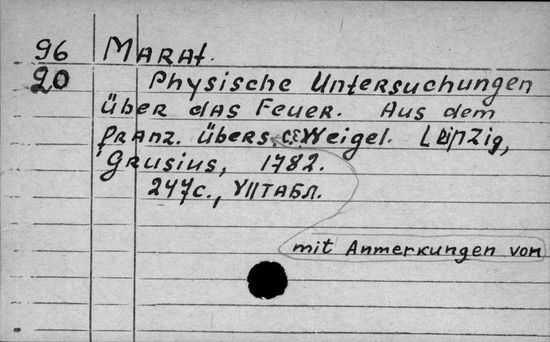 96 Marat.
20 Physische Untersuchungen
über das Feuer. Aus dem
franz. übers. C.E. Weigel. Leipzig,
Crusius, 1782.
247с., VII табл.
mit Anmerkungen von